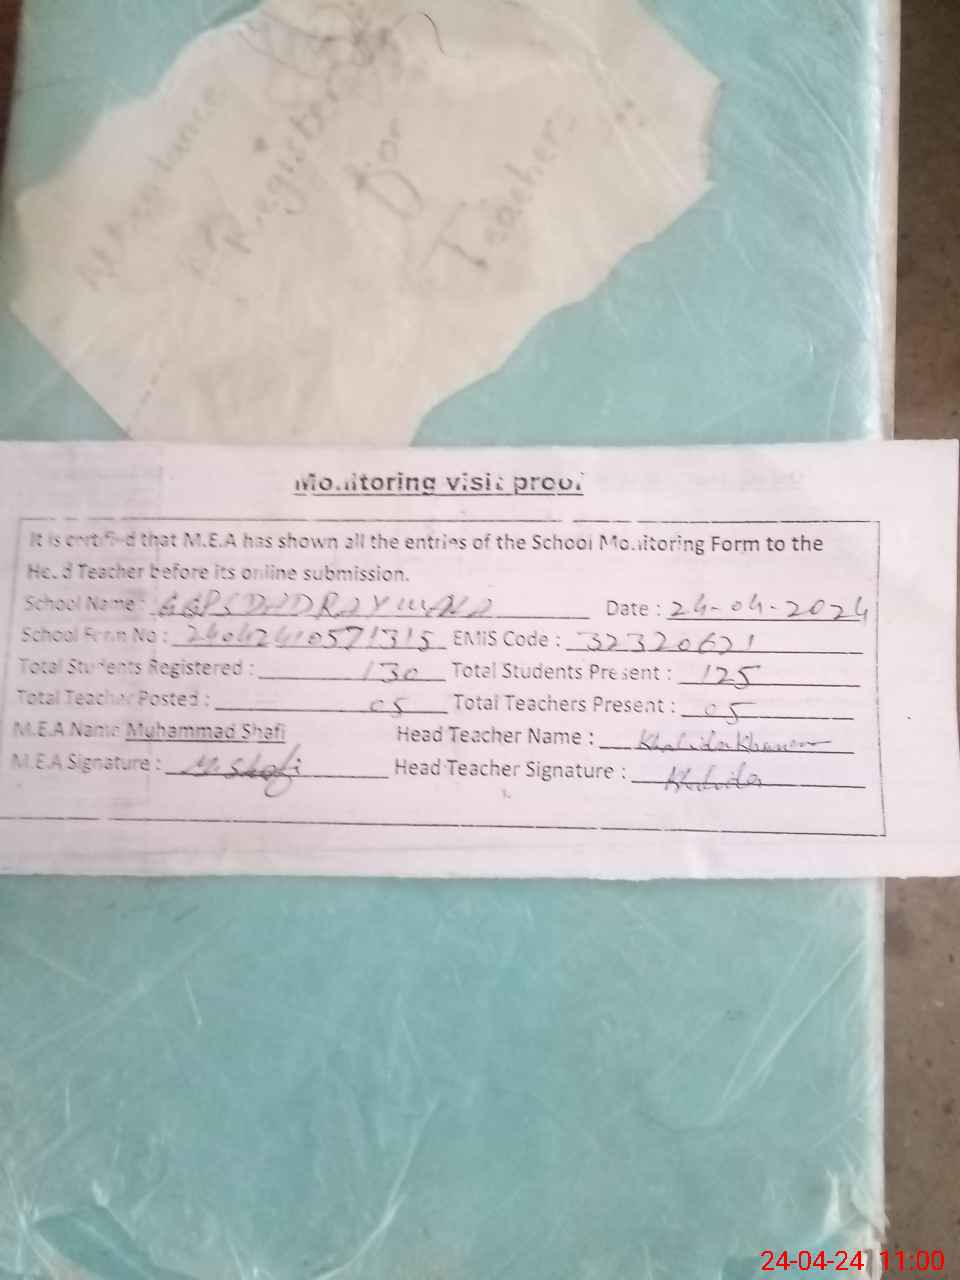 Attendance
Register
For
Teachers
Monitoring visit proof
It is certified that M.E.A has shown all the entries of the School Monitoring Form to the
Head Teacher before its online submission.
School Name : Date : 24-04-2024
School Form No : 24042410571315 EMIS Code : 32320621
Total Students Registered : 130 Total Students Present : 125
Total Teacher Posted : 05 Total Teachers Present : 05
M.E.A Name Muhammad Shafi Head Teacher Name : Khalida Khanum
M.E.A Signature : M. Shafi Head Teacher Signature : Khalida
24-04-24 11:00